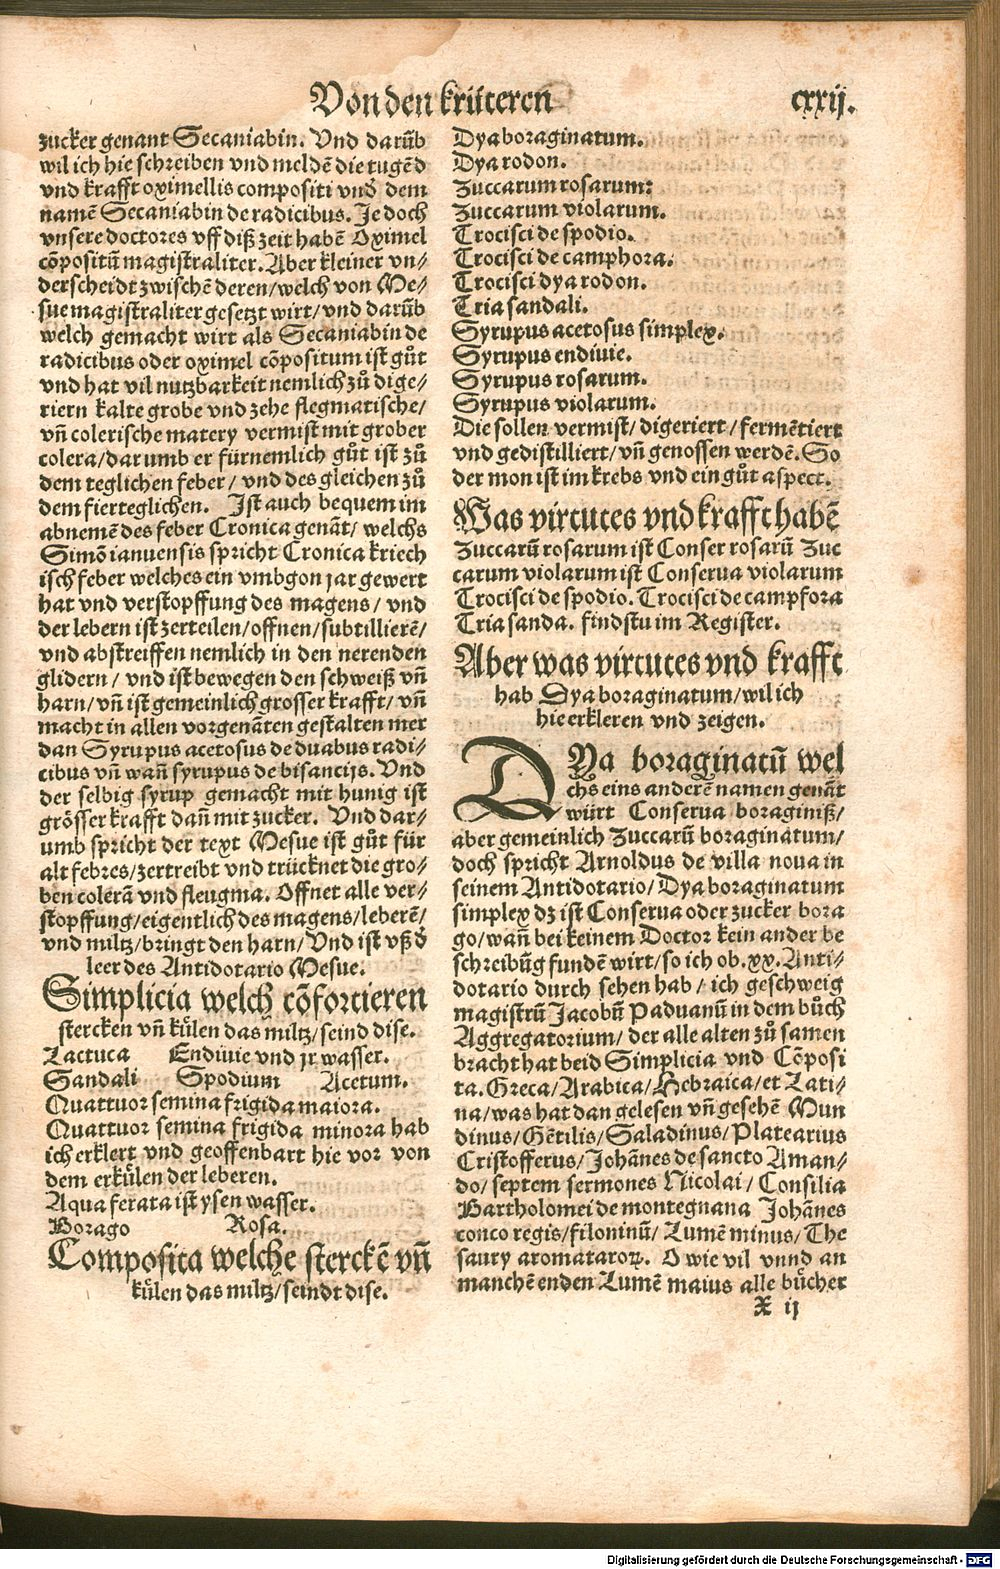 Von den krüteren
cxxij.
zucker genant Secaniabin. Vnd darūb
wil ich hie schreiben vnd meldē die tugēd
vnd krafft oximellis compositi vnd̕ dem
namē Secaniabin de radicibus. Je doch
vnsere doctores vff diß zeit habē Oximel
cōpositū magistraliter. Aber kleiner vn⸗
derscheidt zwischē deren/welch von Me⸗
sue magistraliter gesetzt wirt/vnd darūb
welch gemacht wirt als Secaniabin de
radicibus oder oximel cōpositum ist gůt
vnd hat vil nutzbarkeit nemlich zů dige⸗
riern kalte grobe vnd zehe flegmatische/
vñ colerische matery vermist mit grober
colera/darumb er fürnemlich gůt ist zů
dem teglichen feber/ vnd des gleichen zů
dem fierteglichen. Ist auch bequem im
abnemē des feber Cronica genāt/ welchs
Simō ianuensis spricht Cronica kriech
isch feber welches ein vmbgon jar gewert
hat vnd verstopffung des magens/ vnd
der lebern ist zerteilen/offnen/subtillierē/
vnd abstreiffen nemlich in den nerenden
glidern/ vnd ist bewegen den schweiß vñ
harn/vñ ist gemeinlich grosser krafft/ vñ
macht in allen vorgenāten gestalten mer
dan Syrupus acetosus de duabus radi⸗
cibus vñ wañ syrupus de bisancijs. Vnd
der selbig syrup gemacht mit hunig ist
grösser krafft dañ mit zucker. Vnd dar⸗
umb spricht der text Mesue ist gůt für
alt febres/zertreibt vnd trücknet die gro⸗
ben colerā vnd fleugma. Offnet alle ver⸗
stopffung/eigentlich des magens/leberē/
vnd miltz/bringt den harn/ Vnd ist vß d̕
leer des Antidotario Mesue.
Simplicia welch cōfortieren
stercken vñ kůlen das miltz/seind dise.
Lactuca Endiuie vnd jr wasser.
Sandali Spodium Acetum.
Quattuor semina frigida maiora.
Quattuor semina frigida minora hab
ich erklert vnd geoffenbart hie vor von
dem erkůlen der leberen.
Aqua ferata ist ysen wasser.
Borago Rosa.
Composita welche sterckē vñ
kůlen das miltz/seindt dise.
Dyaboraginatum.
Dya rodon.
Zuccarum rosarum:
Zuccarum violarum.
Trocisci de spodio.
Trocisci de camphora.
Trocisci dya rodon.
Tria sandali.
Syrupus acetosus simplex.
Syrupus endiuie.
Syrupus rosarum.
Syrupus violarum.
Die sollen vermist/ digeriert/fermētiert
vnd gedistilliert/ vñ genossen werdē. So
der mon ist im krebs vnd ein gůt aspect.
Was virtutes vnd krafft habē
Zuccarū rosarum ist Conser rosarū Zuc
carum violarum ist Conserua violarum
Trocisci de spodio. Trocisci de campfora
Tria sanda. findstu im Register.
Aber was virtutes vnd krafft
hab Dya boraginatum/wil ich
hie erkleren vnd zeigen.
DYa boraginatū wel
chs eins anderē namen genāt
würt Conserua boraginiß/
aber gemeinlich Zuccarū boraginatum/
doch spricht Arnoldus de villa noua in
seinem Antidotario/ Dya boraginatum
simplex dz ist Conserua oder zucker bora
go/wañ bei keinem Doctor kein ander be
schreibūg fundē wirt/so ich ob. xx. Anti⸗
dotario durch sehen hab/ ich geschweig
magistrū Jacobū Paduanū in dem bůch
Aggregatorium/ der alle alten zů samen
bracht hat beid Simplicia vnd Cōposi
ta. Greca/Arabica/Hebraica/et Lati⸗
na/was hat dan gelesen vñ gesehē Mun
dinus/Gētilis/Saladinus/Platearius
Cristofferus/Johānes de sancto Aman⸗
do/ septem sermones Nicolai/ Consilia
Bartholomei de montegnana Johānes
conco regis/filoninū/ Lumē minus/ The
saury aromataroꝝ. O wie vil vnnd an
manchē enden Lumē maius alle bücher
X ij
Digitalisierung gefördert durch die Deutsche Forschungsgemeinschaft - DFG